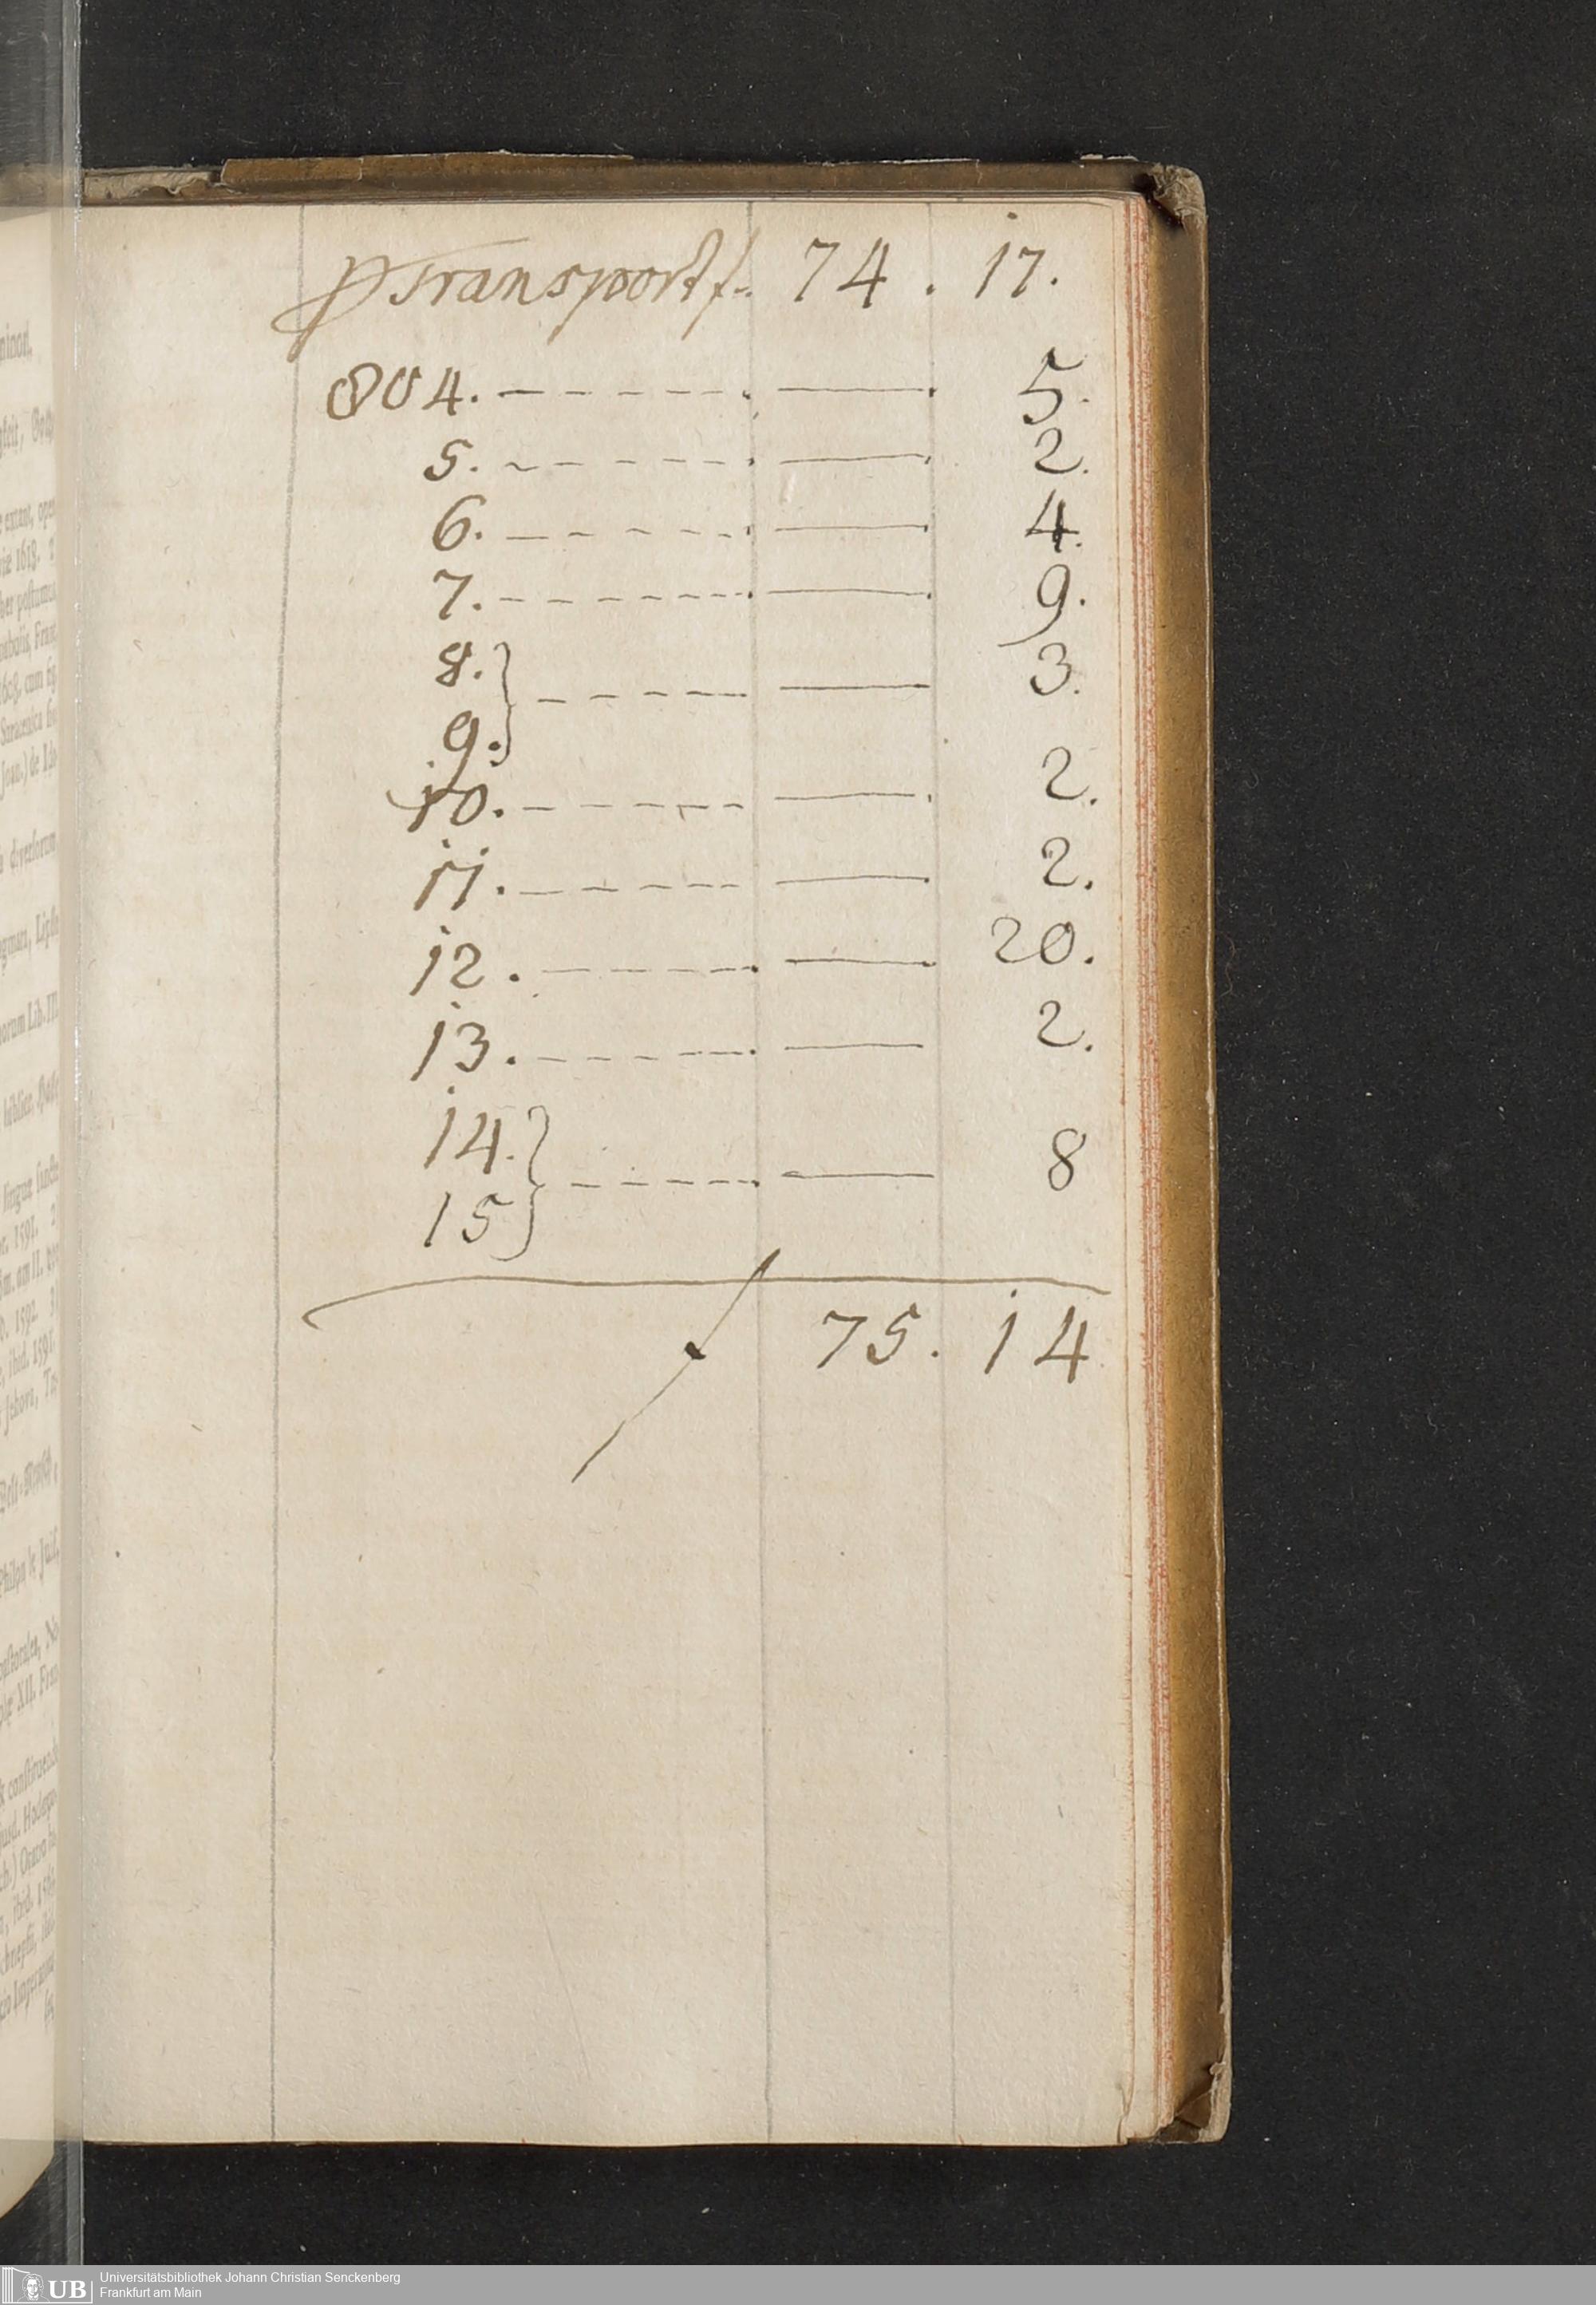 Transport f. 74 . 17.
804. - - - - - - . — . 5.
5. - - - - - . — . 2.
6. - - - - - . — . 4.
7. - - - - - - . — . 9.
8. } - - - - - — 3.
9.
10. - - - - - — . 2.
11. - - - - - — . 2.
12. - - - - - . — . 20.
13. - - - - - . — 2.
14. } - - - - - . — 8
15
75. 14
UB Universitätsbibliothek Johann Christian Senckenberg
Frankfurt am Main